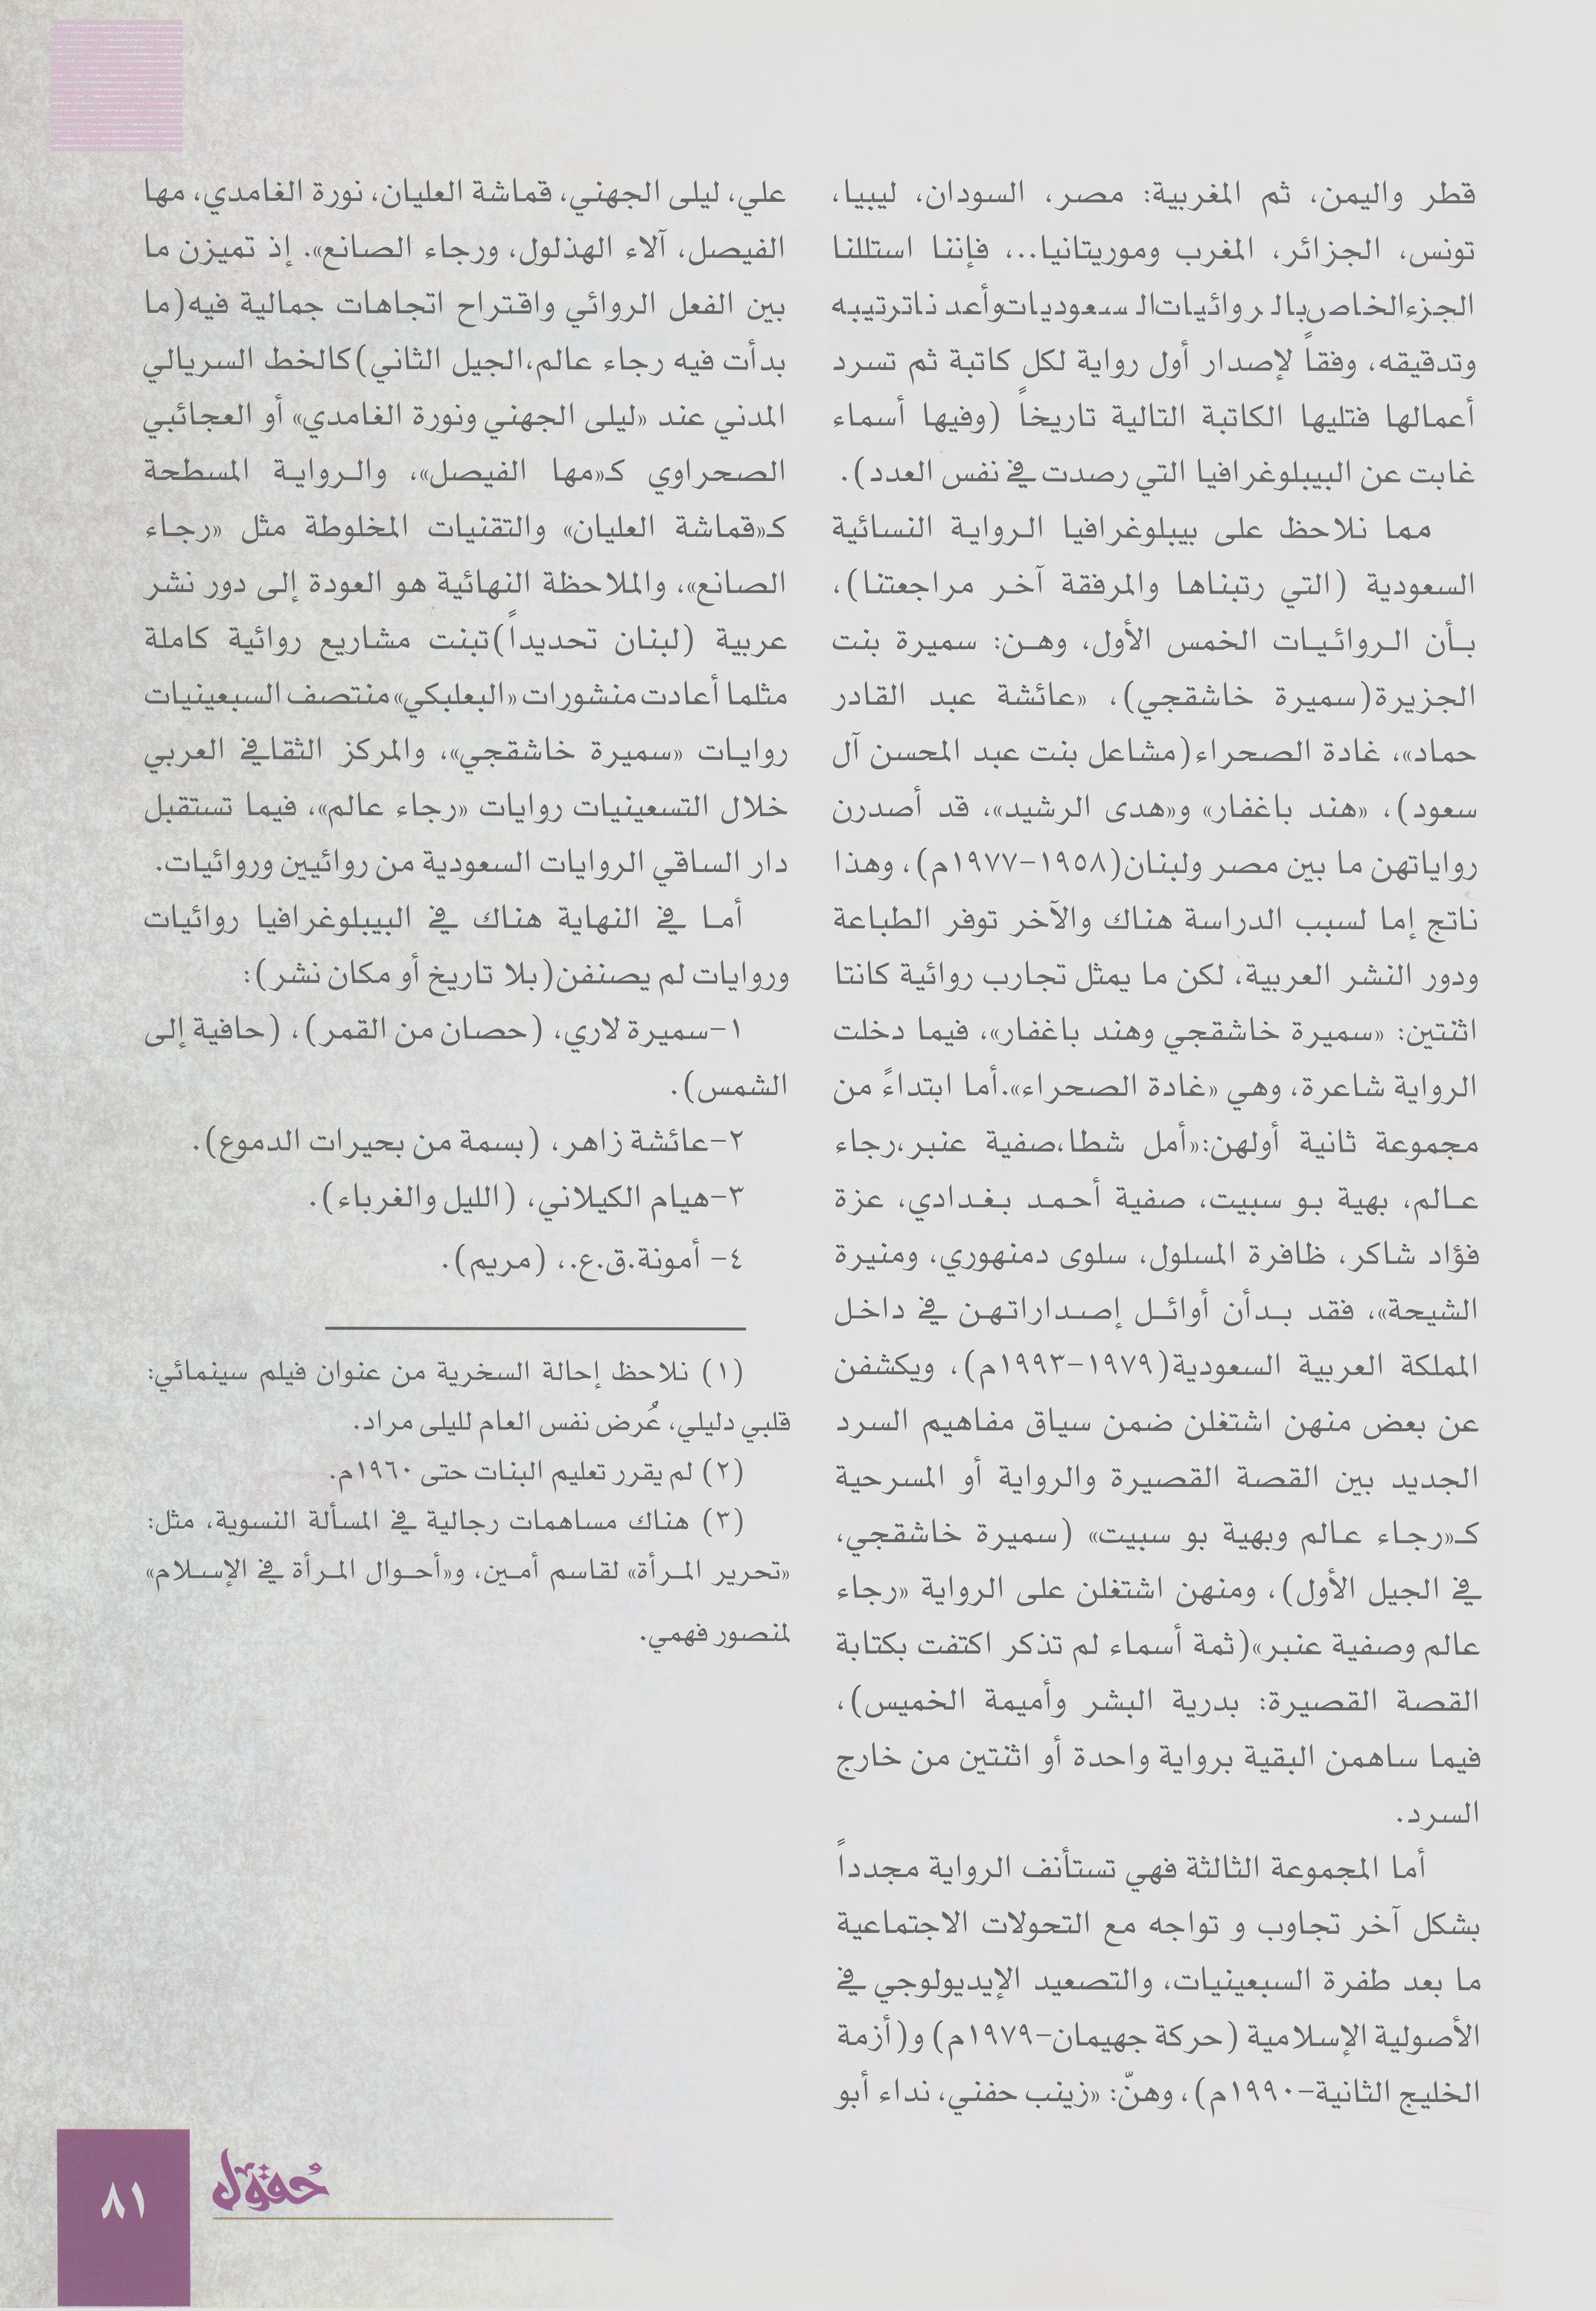 قطر واليمن، ثم المغربية: مصر، السودان، ليبيا،
تونس، الجزائر، المغرب وموريتانيا..، فإننا استللنا
الجزء الخاص بالروائيات السعوديات وأعدنا ترتيبه
وتدقيقه، وفقاً لإصدار أول رواية لكل كاتبة ثم تسرد
أعمالها فتليها الكاتبة التالية تاريخاً (وفيها أسماء
غابت عن البيبلوغرافيا التي رصدت في نفس العدد).
مما نلاحظ على بيبلوغرافيا الرواية النسائية
السعودية (التي رتبناها والمرفقة آخر مراجعتنا)،
بأن الروائيات الخمس الأول، وهن: سميرة بنت
الجزيرة(سميرة خاشقجي)، «عائشة عبد القادر
حماد»، غادة الصحراء(مشاعل بنت عبد المحسن آل
سعود)، «هند باغفار» و«هدى الرشيد»، قد أصدرن
رواياتهن ما بين مصر ولبنان(١٩٥٨-١٩٧٧م)، وهذا
ناتج إما لسبب الدراسة هناك والآخر توفر الطباعة
ودور النشر العربية، لكن ما يمثل تجارب روائية كانتا
اثنتين: «سميرة خاشقجي وهند باغفار»، فيما دخلت
الرواية شاعرة، وهي «غادة الصحراء».أما ابتداءً من
مجموعة ثانية أولهن:«أمل شطا،صفية عنبر،رجاء
عالم، بهية بو سبيت، صفية أحمد بغدادي، عزة
فؤاد شاكر، ظافرة المسلول، سلوى دمنهوري، ومنيرة
الشيحة»، فقد بدأن أوائل إصداراتهن في داخل
المملكة العربية السعودية(١٩٧٩-١٩٩٣م)، ويكشفن
عن بعض منهن اشتغلن ضمن سياق مفاهيم السرد
الجديد بين القصة القصيرة والرواية أو المسرحية
كـ«رجاء عالم وبهية بو سبيت» (سميرة خاشقجي،
في الجيل الأول)، ومنهن اشتغلن على الرواية «رجاء
عالم وصفية عنبر»(ثمة أسماء لم تذكر اكتفت بكتابة
القصة القصيرة: بدرية البشر وأميمة الخميس)،
فيما ساهمن البقية برواية واحدة أو اثنتين من خارج
السرد.
أما المجموعة الثالثة فهي تستأنف الرواية مجدداً
بشكل آخر تجاوب و تواجه مع التحولات الاجتماعية
ما بعد طفرة السبعينيات، والتصعيد الإيديولوجي في
الأصولية الإسلامية (حركة جهيمان-١٩٧٩م) و(أزمة
الخليج الثانية-١٩٩٠م)، وهنّ: «زينب حفني، نداء أبو
علي، ليلى الجهني، قماشة العليان، نورة الغامدي، مها
الفيصل، آلاء الهذلول، ورجاء الصانع». إذ تميزن ما
بين الفعل الروائي واقتراح اتجاهات جمالية فيه(ما
بدأت فيه رجاء عالم،الجيل الثاني)كالخط السريالي
المدني عند «ليلى الجهني ونورة الغامدي» أو العجائبي
الصحراوي كـ«مها الفيصل»، والرواية المسطحة
كـ«قماشة العليان» والتقنيات المخلوطة مثل «رجاء
الصانع»، والملاحظة النهائية هو العودة إلى دور نشر
عربية (لبنان تحديداً)تبنت مشاريع روائية كاملة
مثلما أعادت منشورات «البعلبكي» منتصف السبعينيات
روايات «سميرة خاشقجي»، والمركز الثقافي العربي
خلال التسعينيات روايات «رجاء عالم»، فيما تستقبل
دار الساقي الروايات السعودية من روائيين وروائيات.
أما في النهاية هناك في البيبلوغرافيا روائيات
وروايات لم يصنفن(بلا تاريخ أو مكان نشر):
١-سميرة لاري، (حصان من القمر)، (حافية إلى
الشمس).
٢-عائشة زاهر، (بسمة من بحيرات الدموع).
٣-هيام الكيلاني، (الليل والغرباء).
٤- أمونة.ق.ع.، (مريم).
(١) نلاحظ إحالة السخرية من عنوان فيلم سينمائي:
قلبي دليلي، عُرض نفس العام لليلى مراد.
(٢) لم يقرر تعليم البنات حتى ١٩٦٠م.
(٣) هناك مساهمات رجالية في المسألة النسوية، مثل:
«تحرير المرأة» لقاسم أمين، و«أحوال المرأة في الإسلام»
لمنصور فهمي.
حُقول
٨١